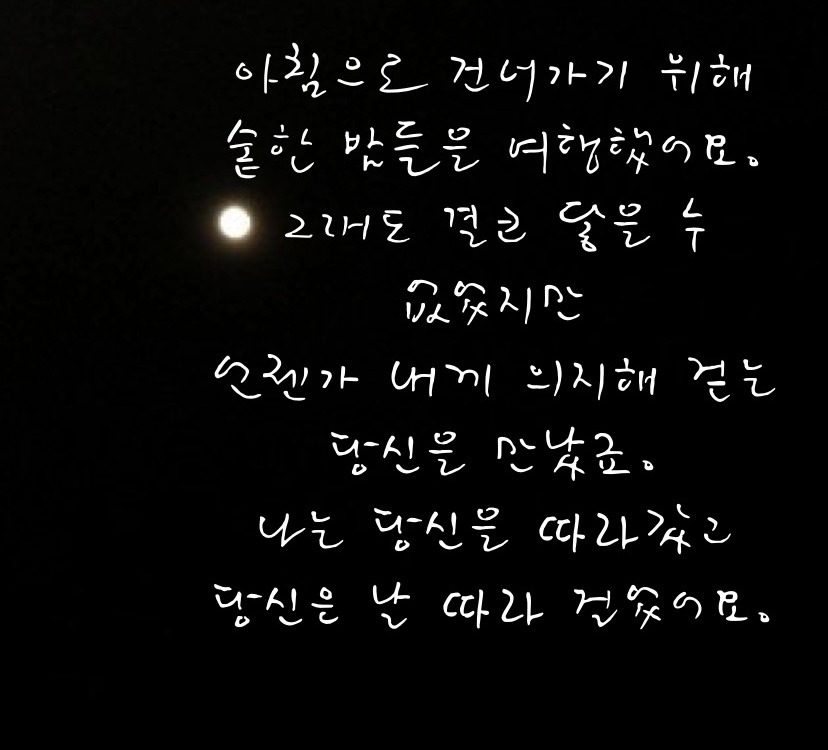 아침으로 건너가기 위해
숱한 밤들을 여행했어요.
그래도 결코 닿을 수
없었지만
언젠가 내게 의지해 걷는
당신을 만났죠.
나는 당신을 따라갔고
당신은 날 따라 걸었어요.